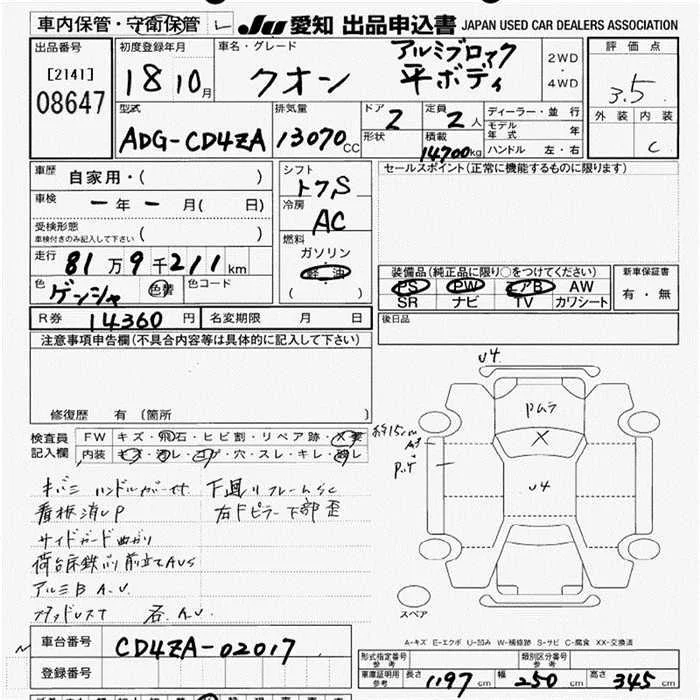 車内保管・守衛保管
JU 愛知 出品申込書 JAPAN USED CAR DEALERS ASSOCIATION
出品番号
[2141]
08647
初度登録年月
18 10月
車名・グレード
クオン
アルミブロック
平ボディ
2WD
・
4WD
評価点
3.5
外装 内装
C
型式
ADG-CD4ZA
排気量
13070cc
ドア
2
定員
2人
形状
積載
14700kg
ディーラー・並行
モデル年式 年
ハンドル 左・右
車歴 自家用・( )
車検 ー年ー月( 日)
受検形態
車検付きのみ記入して下さい ( )
走行 81万9千211km
色 ゲンシャ 色替 色コード
シフト
トフS
冷房
AC
燃料
ガソリン
軽油
( )
セールスポイント(正常に機能するものに限ります)
装備品(純正品に限り○をつけてください)
PS PW エアB AW
SR ナビ TV カワシート
新車保証書
有・無
R券 14360円 名変期限 月 日
後日品
注意事項申告欄(不具合内容等は具体的に記入して下さい)
修復歴 有(箇所 )
検査員記入欄
FW キズ・飛石・ヒビ割・リペア跡・X要
内装 キズ・汚レ・コゲ・穴・スレ・キレ・破レ
ハンドルガー付 下廻りフレームSC
看板消しP 右Fピラー下部歪
サイドガード曲がり
アルミB A.U.
U4
約15cm
Pムラ
X
U4
スペア
A-キズ E-エクボ U-凹み W-補修跡 S-サビ C-腐食 XX-交換済
車台番号 CD4ZA-02017
登録番号
形式指定番号 参考
類別区分番号 参考
車庫証明用参考 長さ 1197cm 幅 250cm 高さ 345cm